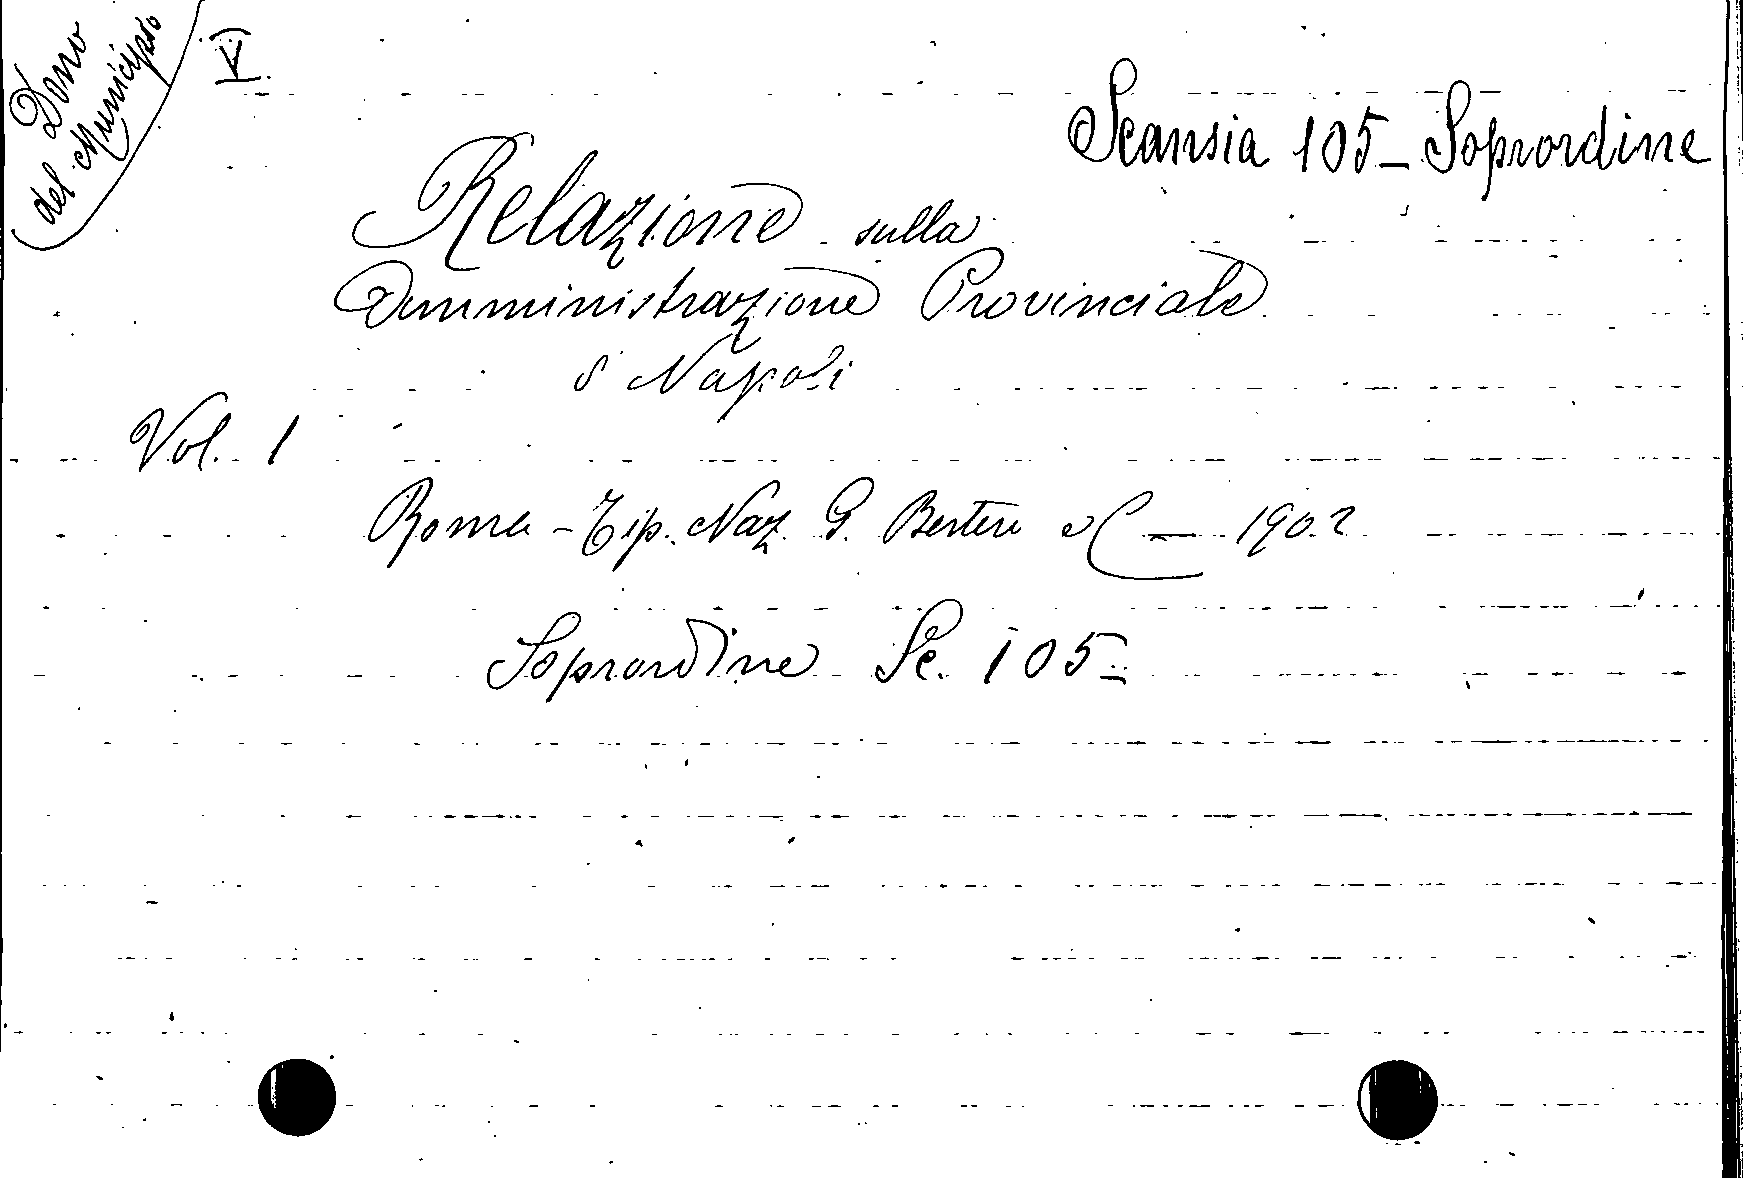 Dono
del Municipio
V
Scansia 105 - Soprordine
Relazione sulla
Amministrazione Provinciale
di Napoli
Vol. 1
Roma - Tip. Naz. G. Bertero e C — 1902
Soprordine Sc. 105 -